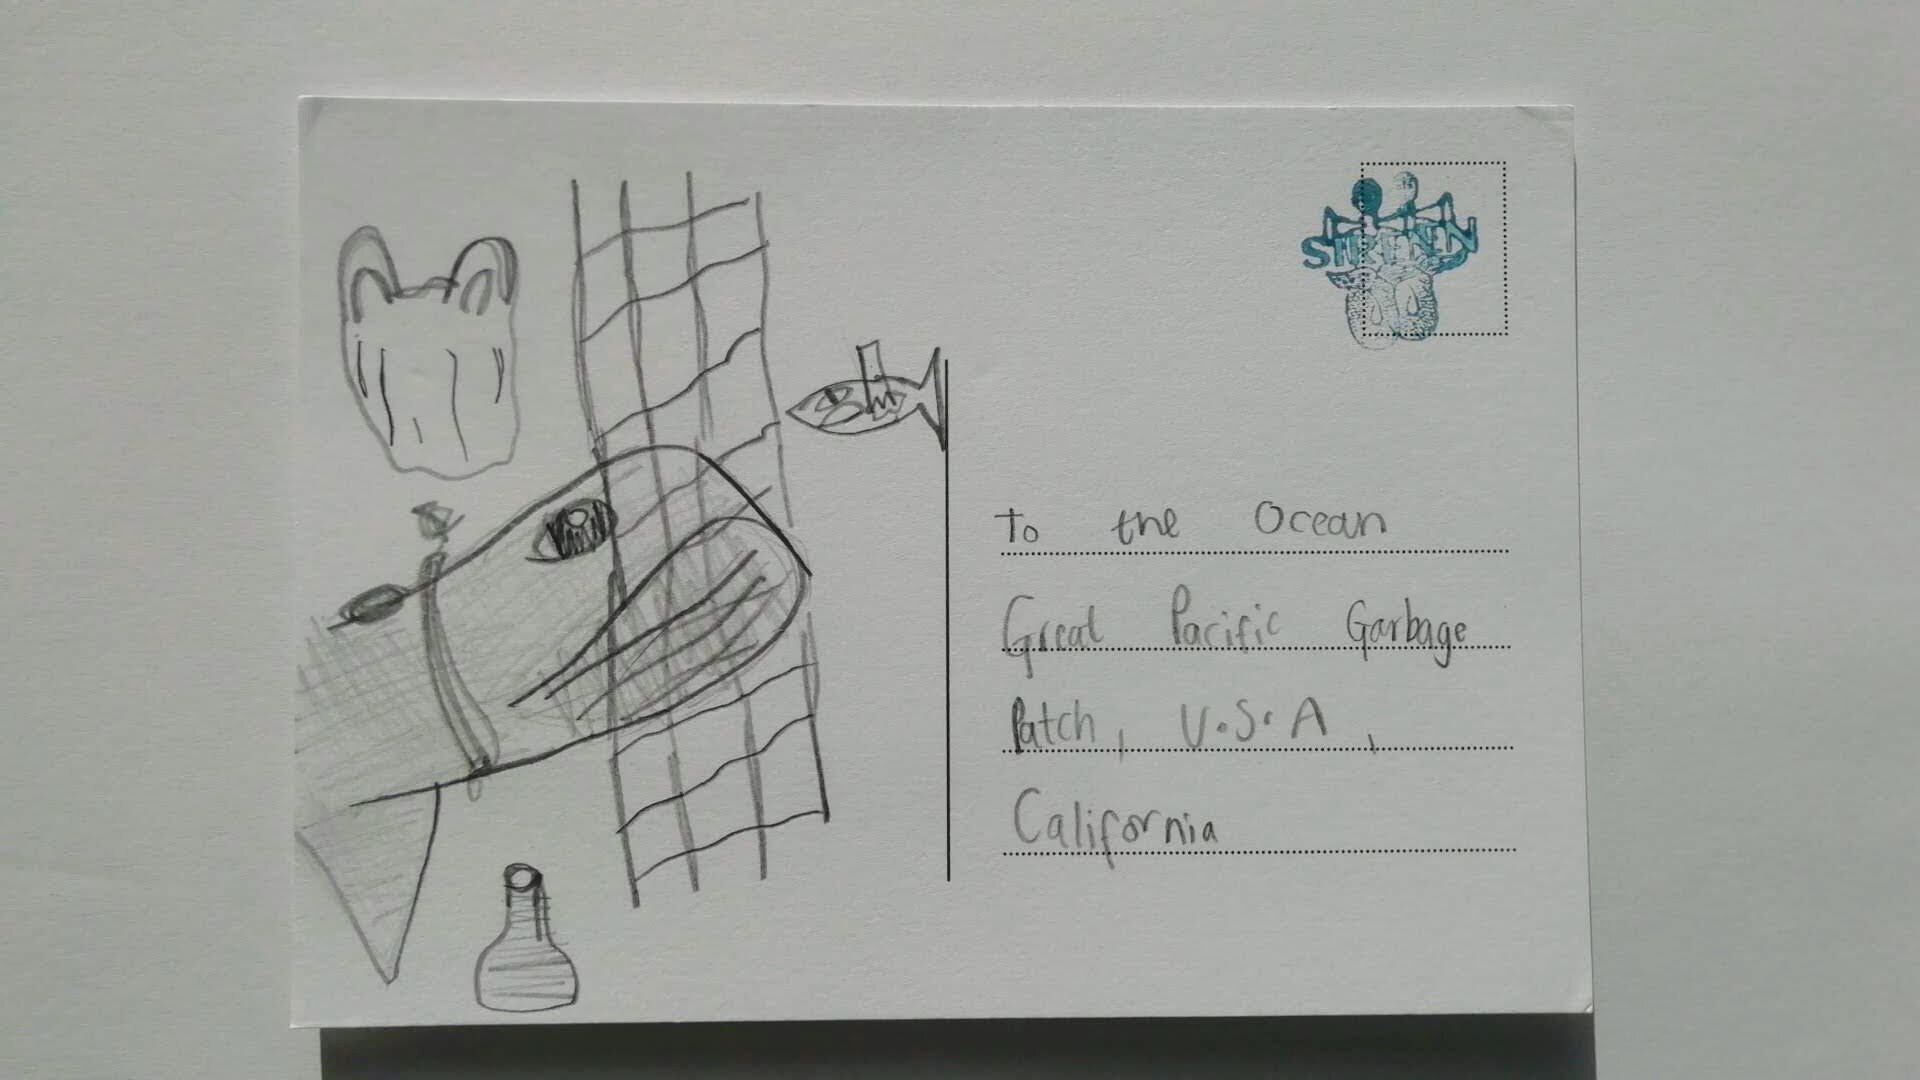 To the Ocean
Great Pacific Garbage
Patch, U.S.A,
California